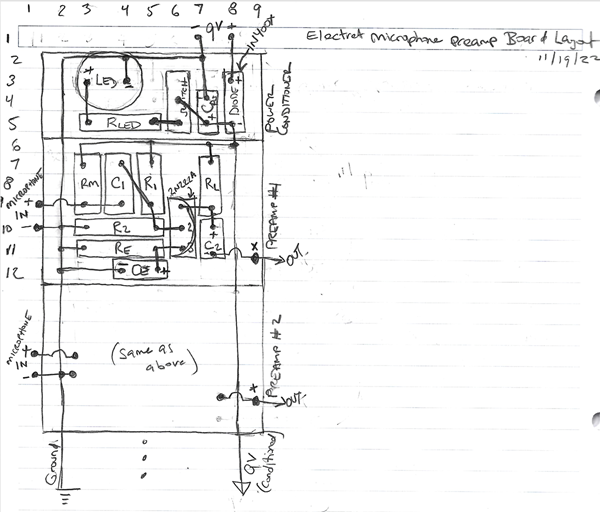 1 2 3 4 5 6 7 8 9
- 9V +
1
Electret Microphone Preamp Board Layout
11/19/22
IN4001
2
3
+ LED -
SWITCH
DIODE
+
-
4
5
RLED
POWER CONDITIONER
6
7
8
RM C1 R1
2N2222A
RL
MICROPHONE
IN
+
-
9
10
R2
2
+
C2
11
RE
3
x
OUT
12
- CE +
PREAMP #1
MICROPHONE
IN
+
-
(Same as
above)
x
OUT
PREAMP #2
Ground
9V
(Conditioned)